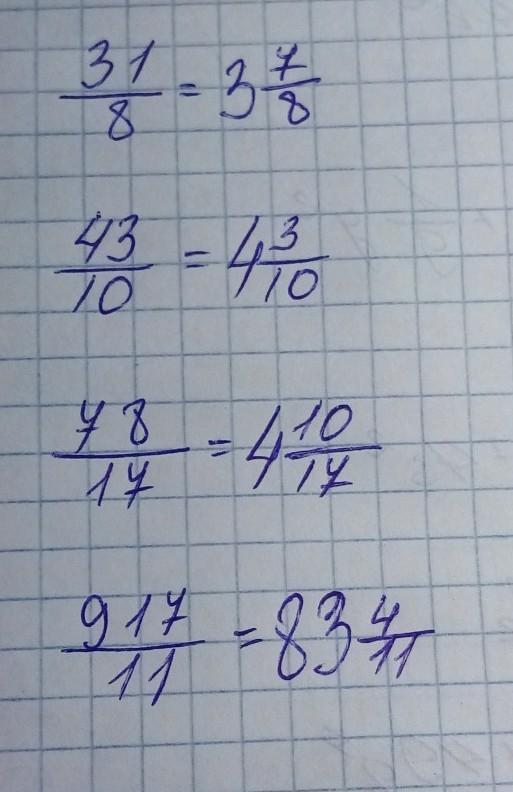 31/8 = 3 7/8
43/10 = 4 3/10
78/17 = 4 10/17
917/11 = 83 4/11